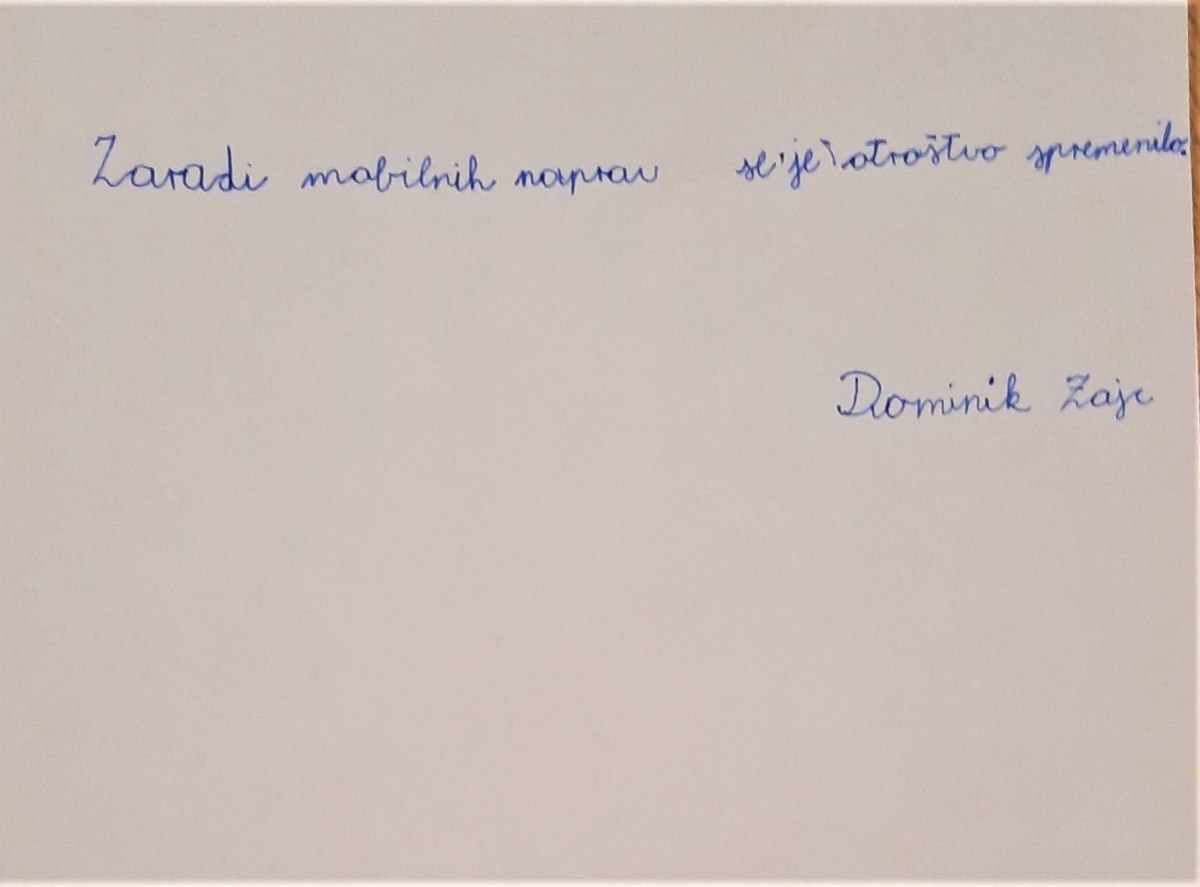 Zaradi mobilnih naprav se je otroštvo spremenilo.
Dominik Zajc